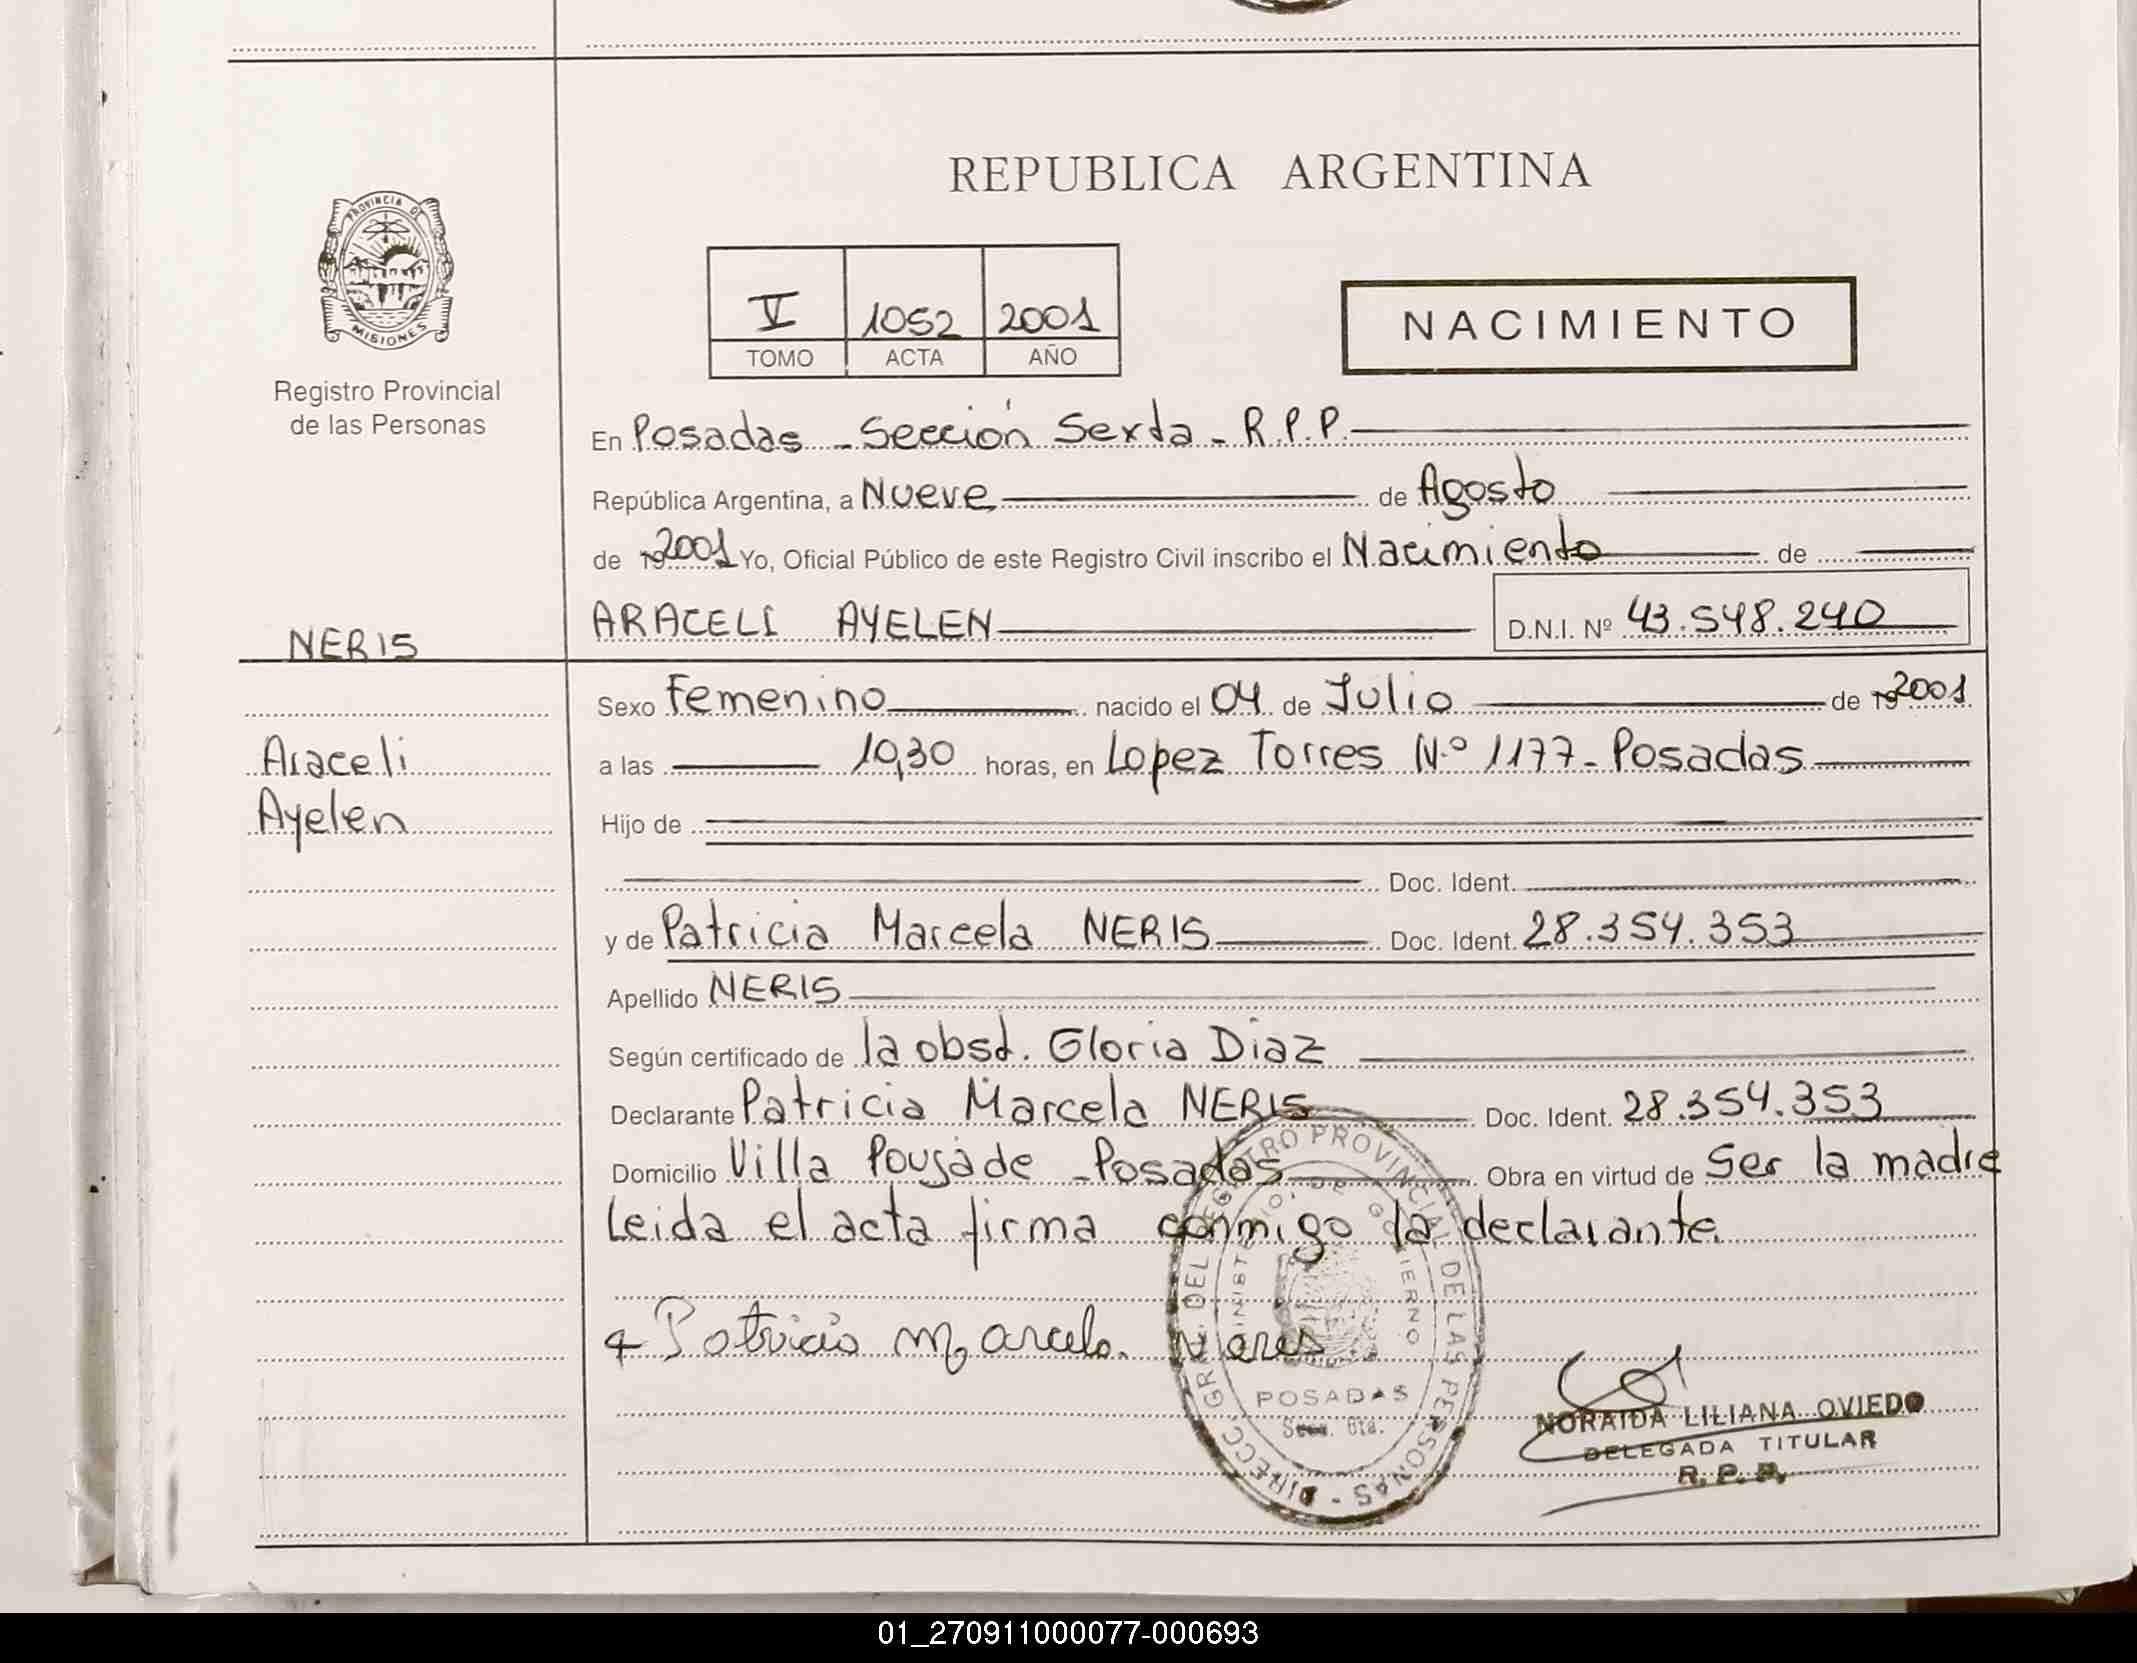 REPUBLICA ARGENTINA
PROVINCIA DE
MISIONES
Registro Provincial
de las Personas
V 1052 2001
TOMO ACTA AÑO
NACIMIENTO
En Posadas - Sección Sexta - R.P.P.
República Argentina, a Nueve de Agosto
de 19 2001 Yo, Oficial Público de este Registro Civil inscribo el Nacimiento de
ARACELI AYELEN D.N.I. Nº 43.548.240
NERIS
Araceli
Ayelen
Sexo Femenino nacido el 04 de Julio de 19 2001
a las 10,30 horas, en Lopez Torres N.º 1177 - Posadas
Hijo de
Doc. Ident.
y de Patricia Marcela NERIS Doc. Ident. 28.354.353
Apellido NERIS
Según certificado de la obst. Gloria Diaz
Declarante Patricia Marcela NERIS Doc. Ident. 28.354.353
Domicilio Villa Poujade - Posadas Obra en virtud de Ser la madre
Leida el acta firma conmigo la declarante.
Patricia Marcela Neres
DIRECC. GRAL. DEL REGISTRO PROVINCIAL DE LAS PERSONAS -
MINISTERIO DE GOBIERNO
POSADAS
Secc. 6ta.
NORAIDA LILIANA OVIEDO
DELEGADA TITULAR
R. P. P.
01_270911000077-000693